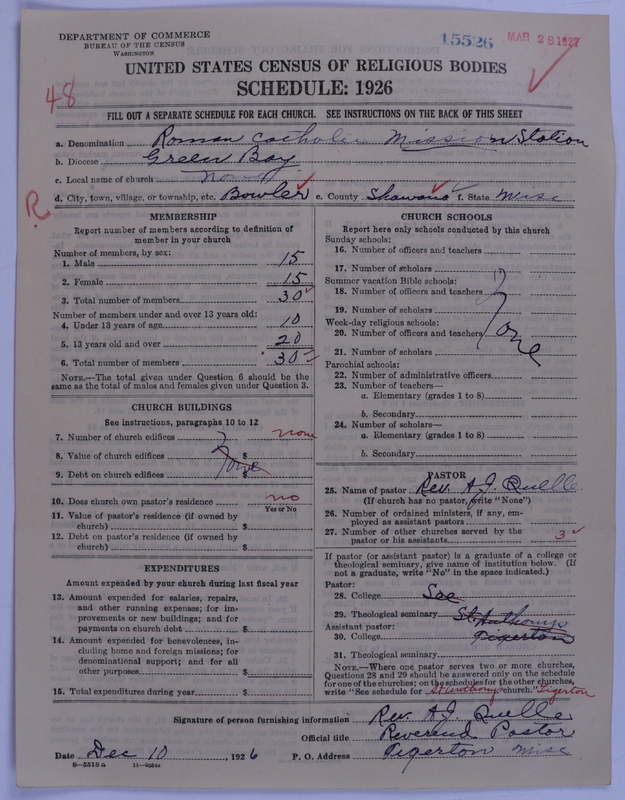 DEPARTMENT OF COMMERCE
BUREAU OF THE CENSUS
WASHINGTON
15526
MAR 28 1927
UNITED STATES CENSUS OF RELIGIOUS BODIES
SCHEDULE: 1926
48
FILL OUT A SEPARATE SCHEDULE FOR EACH CHURCH. SEE INSTRUCTIONS ON THE BACK OF THIS SHEET
a. Denomination Roman Catholic Mission Station
b. Diocese Green Bay
c. Local name of church None
d. City, town, village, or township, etc. Bowler e. County Shawano f. State Wisc
R
MEMBERSHIP
Report number of members according to definition of
member in your church
Number of members, by sex:
1. Male 15
2. Female 15
3. Total number of members 30
Number of members under and over 13 years old:
4. Under 13 years of age 10
5. 13 years old and over 20
6. Total number of members 30
NOTE.—The total given under Question 6 should be the
same as the total of males and females given under Question 3.
CHURCH BUILDINGS
See instructions, paragraphs 10 to 12
7. Number of church edifices none
8. Value of church edifices $
None
9. Debt on church edifices $
10. Does church own pastor's residence no
Yes or No
11. Value of pastor's residence (if owned by
church) $
12. Debt on pastor's residence (if owned by
church) $
EXPENDITURES
Amount expended by your church during last fiscal year
13. Amount expended for salaries, repairs,
and other running expenses; for im-
provements or new buildings; and for
payments on church debt $
14. Amount expended for benevolences, in-
cluding home and foreign missions; for
denominational support; and for all
other purposes $
15. Total expenditures during year $
CHURCH SCHOOLS
Report here only schools conducted by this church
Sunday schools:
16. Number of officers and teachers
17. Number of scholars
Summer vacation Bible schools:
18. Number of officers and teachers
19. Number of scholars
Week-day religious schools:
20. Number of officers and teachers
None
21. Number of scholars
Parochial schools:
22. Number of administrative officers
23. Number of teachers—
a. Elementary (grades 1 to 8)
b. Secondary
24. Number of scholars—
a. Elementary (grades 1 to 8)
b. Secondary
PASTOR
25. Name of pastor Rev. A. J. Quelle
(If church has no pastor, write "None")
26. Number of ordained ministers, if any, em-
ployed as assistant pastors
27. Number of other churches served by the
pastor or his assistants 3
If pastor (or assistant pastor) is a graduate of a college or
theological seminary, give name of institution below. (If
not a graduate, write "No" in the space indicated.)
Pastor:
28. College See
29. Theological seminary St. Anthony
Assistant pastor:
30. College Tigerton
31. Theological seminary
NOTE.—Where one pastor serves two or more churches,
Questions 28 and 29 should be answered only on the schedule
for one of the churches; on the schedules for the other churches,
write "See schedule for St Anthony church." Tigerton
Signature of person furnishing information Rev. A. J. Quelle
Official title Reverend Pastor
Date Dec 10, 1926 P. O. Address Tigerton Wisc
8—5518 a